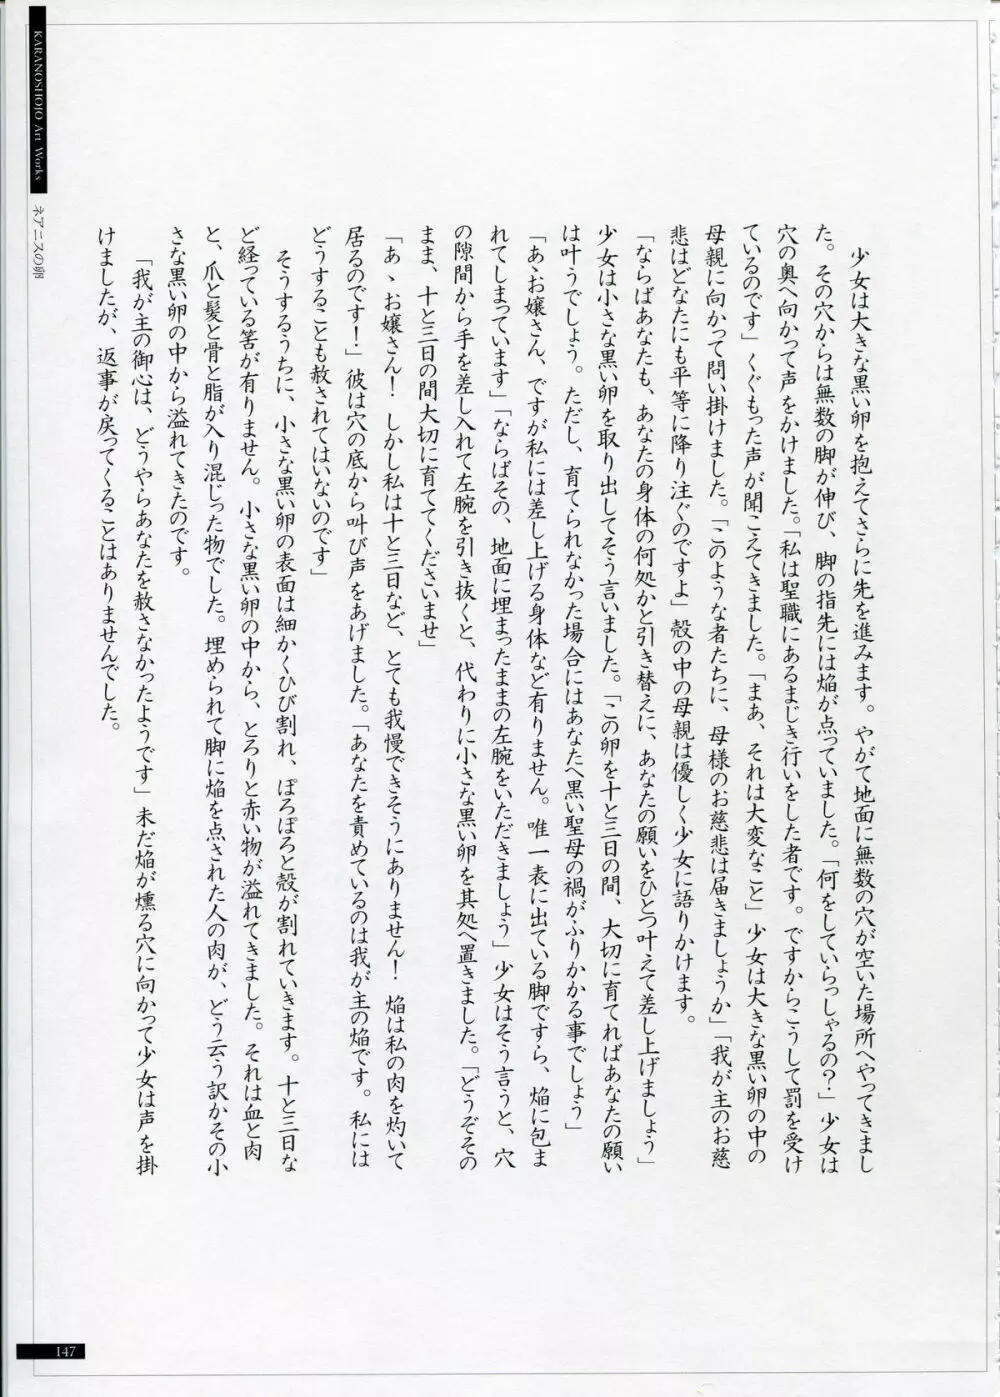 KARANOSHOJO Art Works
ネアニスの卵
　少女は大きな黒い卵を抱えてさらに先を進みます。やがて地面に無数の穴が空いた場所へやってきまし
た。その穴からは無数の脚が伸び、脚の指先には焔が点っていました。「何をしていらっしゃるの？」少女は
穴の奥へ向かって声をかけました。「私は聖職にあるまじき行いをした者です。ですからこうして罰を受け
ているのです」くぐもった声が聞こえてきました。「まあ、それは大変なこと」少女は大きな黒い卵の中の
母親に向かって問い掛けました。「このような者たちに、母様のお慈悲は届きましょうか」「我が主のお慈
悲はどなたにも平等に降り注ぐのですよ」殻の中の母親は優しく少女に語りかけます。
「ならばあなたも、あなたの身体の何処かと引き替えに、あなたの願いをひとつ叶えて差し上げましょう」
少女は小さな黒い卵を取り出してそう言いました。「この卵を十と三日の間、大切に育てればあなたの願い
は叶うでしょう。ただし、育てられなかった場合にはあなたへ黒い聖母の禍がふりかかる事でしょう」
「あゝお嬢さん、ですが私には差し上げる身体など有りません。唯一表に出ている脚ですら、焔に包ま
れてしまっています」「ならばその、地面に埋まったままの左腕をいただきましょう」少女はそう言うと、穴
の隙間から手を差し入れて左腕を引き抜くと、代わりに小さな黒い卵を其処へ置きました。「どうぞその
まま、十と三日の間大切に育ててくださいませ」
「あゝお嬢さん！しかし私は十と三日など、とても我慢できそうにありません！焔は私の肉を灼いて
居るのです！」彼は穴の底から叫び声をあげました。「あなたを責めているのは我が主の焔です。私には
どうすることも赦されてはいないのです」
　そうするうちに、小さな黒い卵の表面は細かくひび割れ、ぽろぽろと殻が割れていきます。十と三日な
ど経っている筈が有りません。小さな黒い卵の中から、とろりと赤い物が溢れてきました。それは血と肉
と、爪と髪と骨と脂が入り混じった物でした。埋められて脚に焔を点された人の肉が、どう云う訳かその小
さな黒い卵の中から溢れてきたのです。
「我が主の御心は、どうやらあなたを赦さなかったようです」未だ焔が燻る穴に向かって少女は声を掛
けましたが、返事が戻ってくることはありませんでした。
147